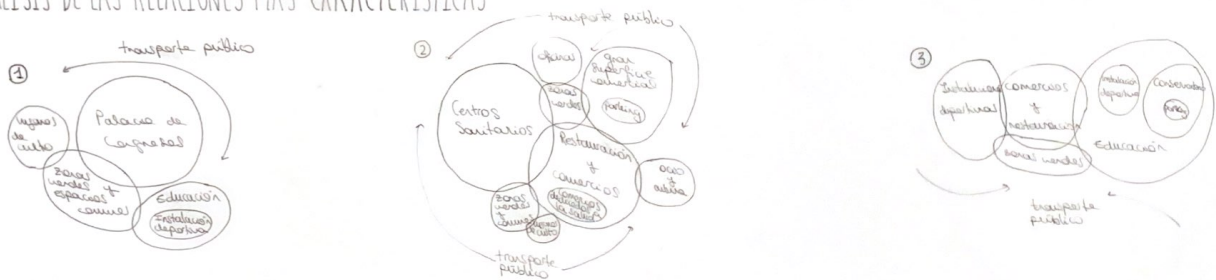 ÁLISIS DE LAS RELACIONES MÁS CARACTERÍSTICAS
1
transporte público
Palacio de
Congresos
lugares
de
culto
zonas
verdes y
espacios
comunes
Educación
Instalación
deportiva
2
transporte público
oficinas
gran
superficie
comercial
parking
zonas
verdes
Centros
Sanitarios
Restauración
y
comercios
comercios
dedicados a
la salud
ocio
y
cultura
zonas
verdes
y
comunes
lugares
de culto
transporte
público
3
Instalaciones
deportivas
comercios
y
restauración
zonas verdes
Instalación
deportiva
Conservatorio
parking
Educación
transporte
público